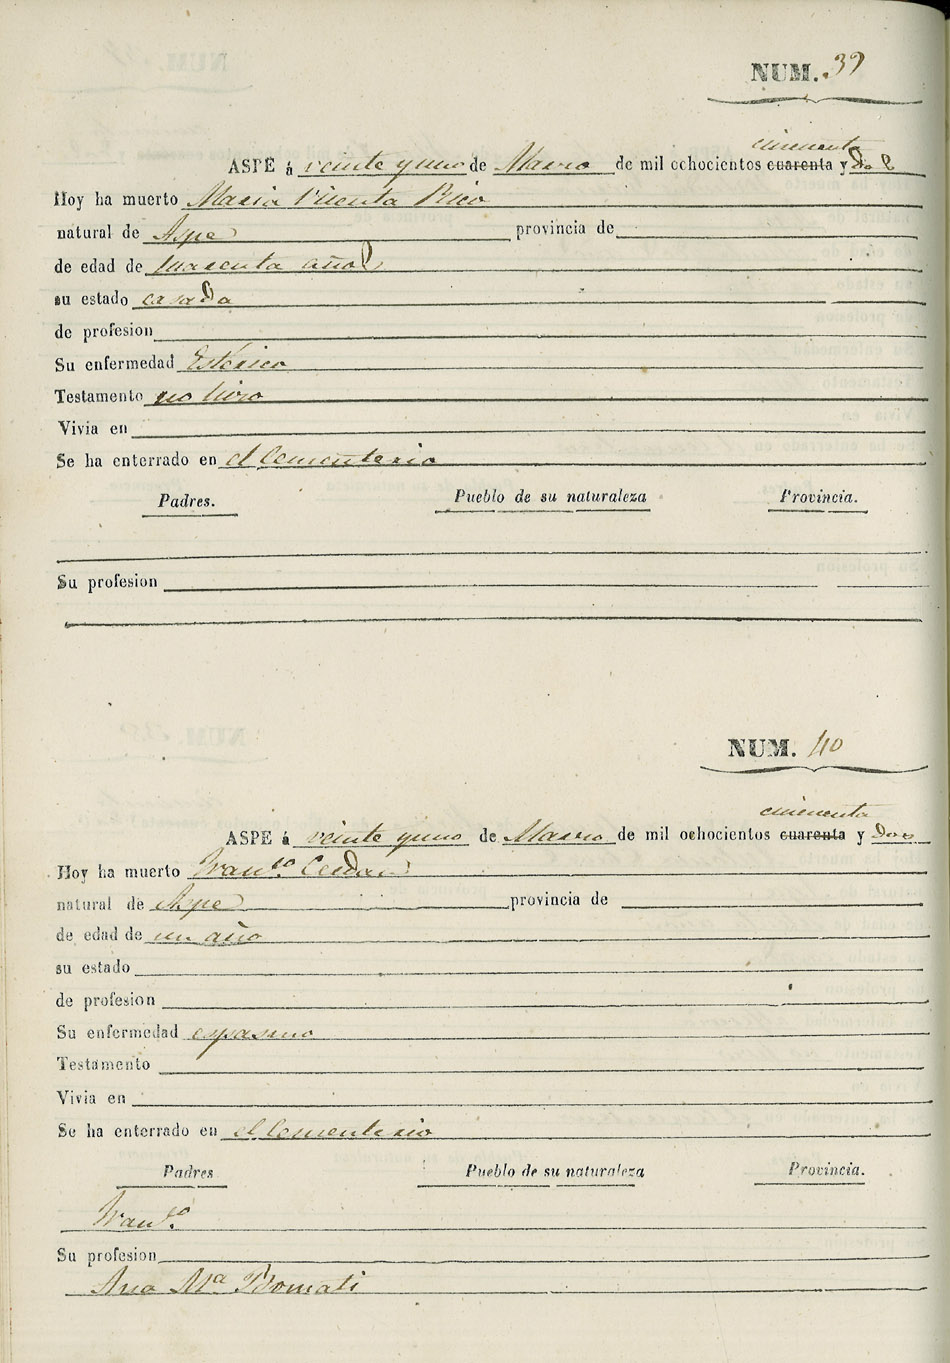 NUM. 39
cincuenta
ASPE á veinte y uno de Marzo de mil ochocientos cuarenta y dos
Hoy ha muerto Maria Vicenta Rico
natural de Aspe provincia de
de edad de cuarenta años
su estado casada
de profesion
Su enfermedad Esterico
Testamento no hizo
Vivia en
Se ha enterrado en el Cementerio
Padres. Pueblo de su naturaleza Provincia.
Su profesion
NUM. 40
cincuenta
ASPE á veinte y uno de Marzo de mil ochocientos cuarenta y dos
Hoy ha muerto Fran.co Cerdan
natural de Aspe provincia de
de edad de un año
su estado
de profesion
Su enfermedad espasmo
Testamento
Vivia en
Se ha enterrado en el Cementerio
Padres Pueblo de su naturaleza Provincia.
Fran.co
Su profesion
Ana Mª Bomati